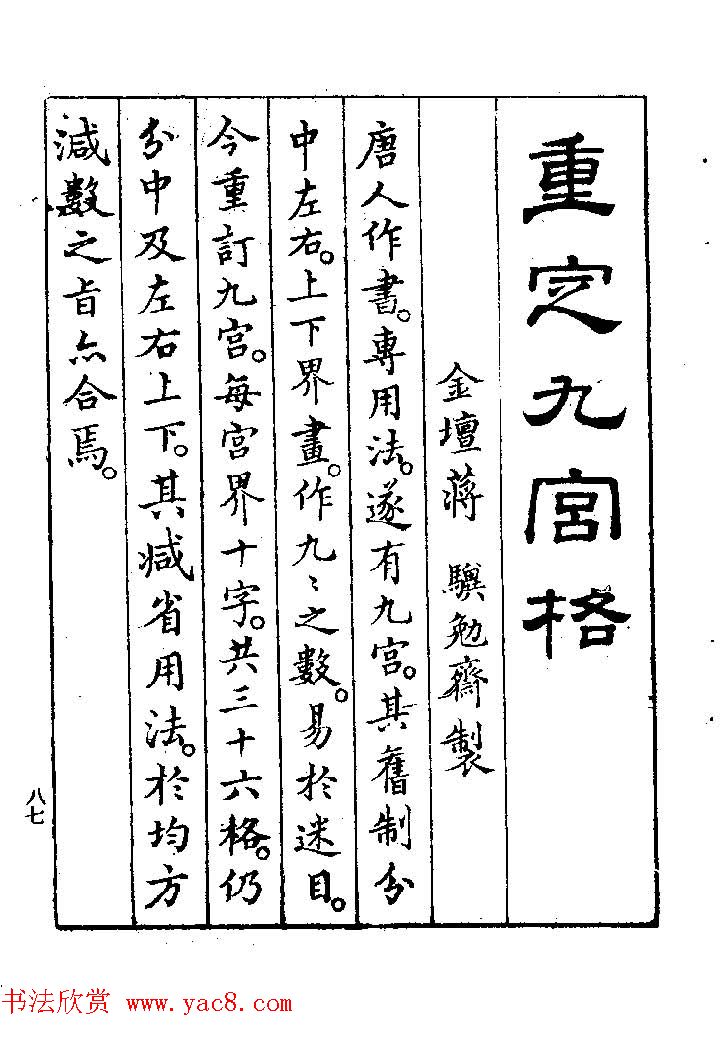 重定九宮格
金壇蔣　驥勉齋製
唐人作書。專用法。遂有九宮。其舊制分
中左右。上下界畫。作九〻之數。易於迷目。
今重訂九宮。每宮界十字。共三十六格。仍
分中及左右上下。其减省用法。於均方
減數之旨亦合焉。
八七
书法欣赏 www.yac8.com